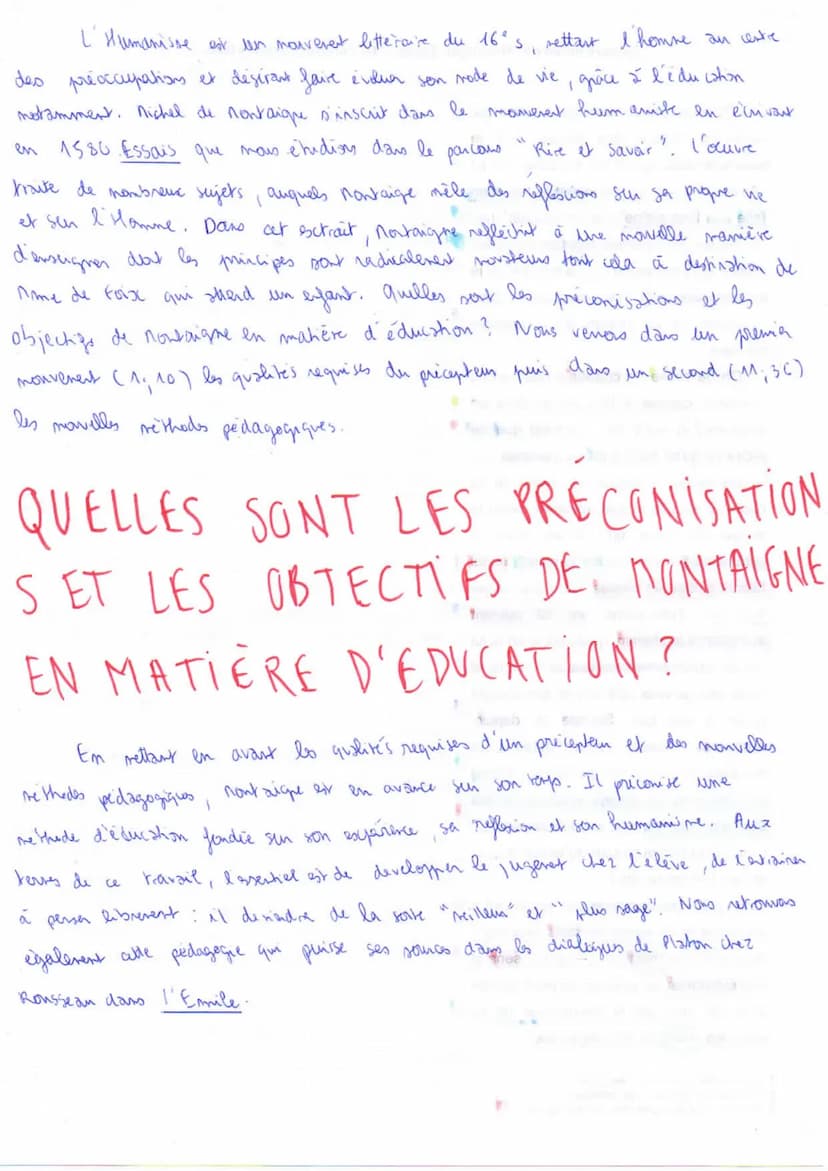 L'Humanisme est un mouvement littéraire du 16° s, mettant l'homme au centre
des préoccupations et désirant faire évoluer son mode de vie, grâce à l'éducation
notamment. Michel de Montaigne s'inscrit dans le mouvement humaniste en écrivant
en 1580 Essais que nous étudions dans le parcours "Rire et savoir". L'œuvre
traite de nombreux sujets, auxquels Montaigne mêle des réflexions sur sa propre vie
et sur l'Homme. Dans cet extrait, Montaigne réfléchit à une nouvelle manière
d'enseigner dont les principes sont radicalement novateurs tout cela à destination de
Mme de Foix qui attend un enfant. Quelles sont les préconisations et les
objectifs de Montaigne en matière d'éducation ? Nous verrons dans un premier
mouvement (1;10) les qualités requises du précepteur puis dans un second (11;36)
les nouvelles méthodes pédagogiques.
QUELLES SONT LES PRÉCONISATION
S ET LES OBJECTIFS DE MONTAIGNE
EN MATIÈRE D'EDUCATION ?
En mettant en avant les qualités requises d'un précepteur et des nouvelles
méthodes pédagogiques, Montaigne est en avance sur son temps. Il préconise une
méthode d'éducation fondée sur son expérience, sa réflexion et son humanisme. Aux
termes de ce travail, l'essentiel est de developper le jugement chez l'élève, de l'entrainer
à penser librement : il deviendra de la sorte "meilleur" et "plus sage". Nous retrouvons
également cette pédagogie qui puise ses sources dans les dialogues de Platon chez
Rousseau dans l'Emile.